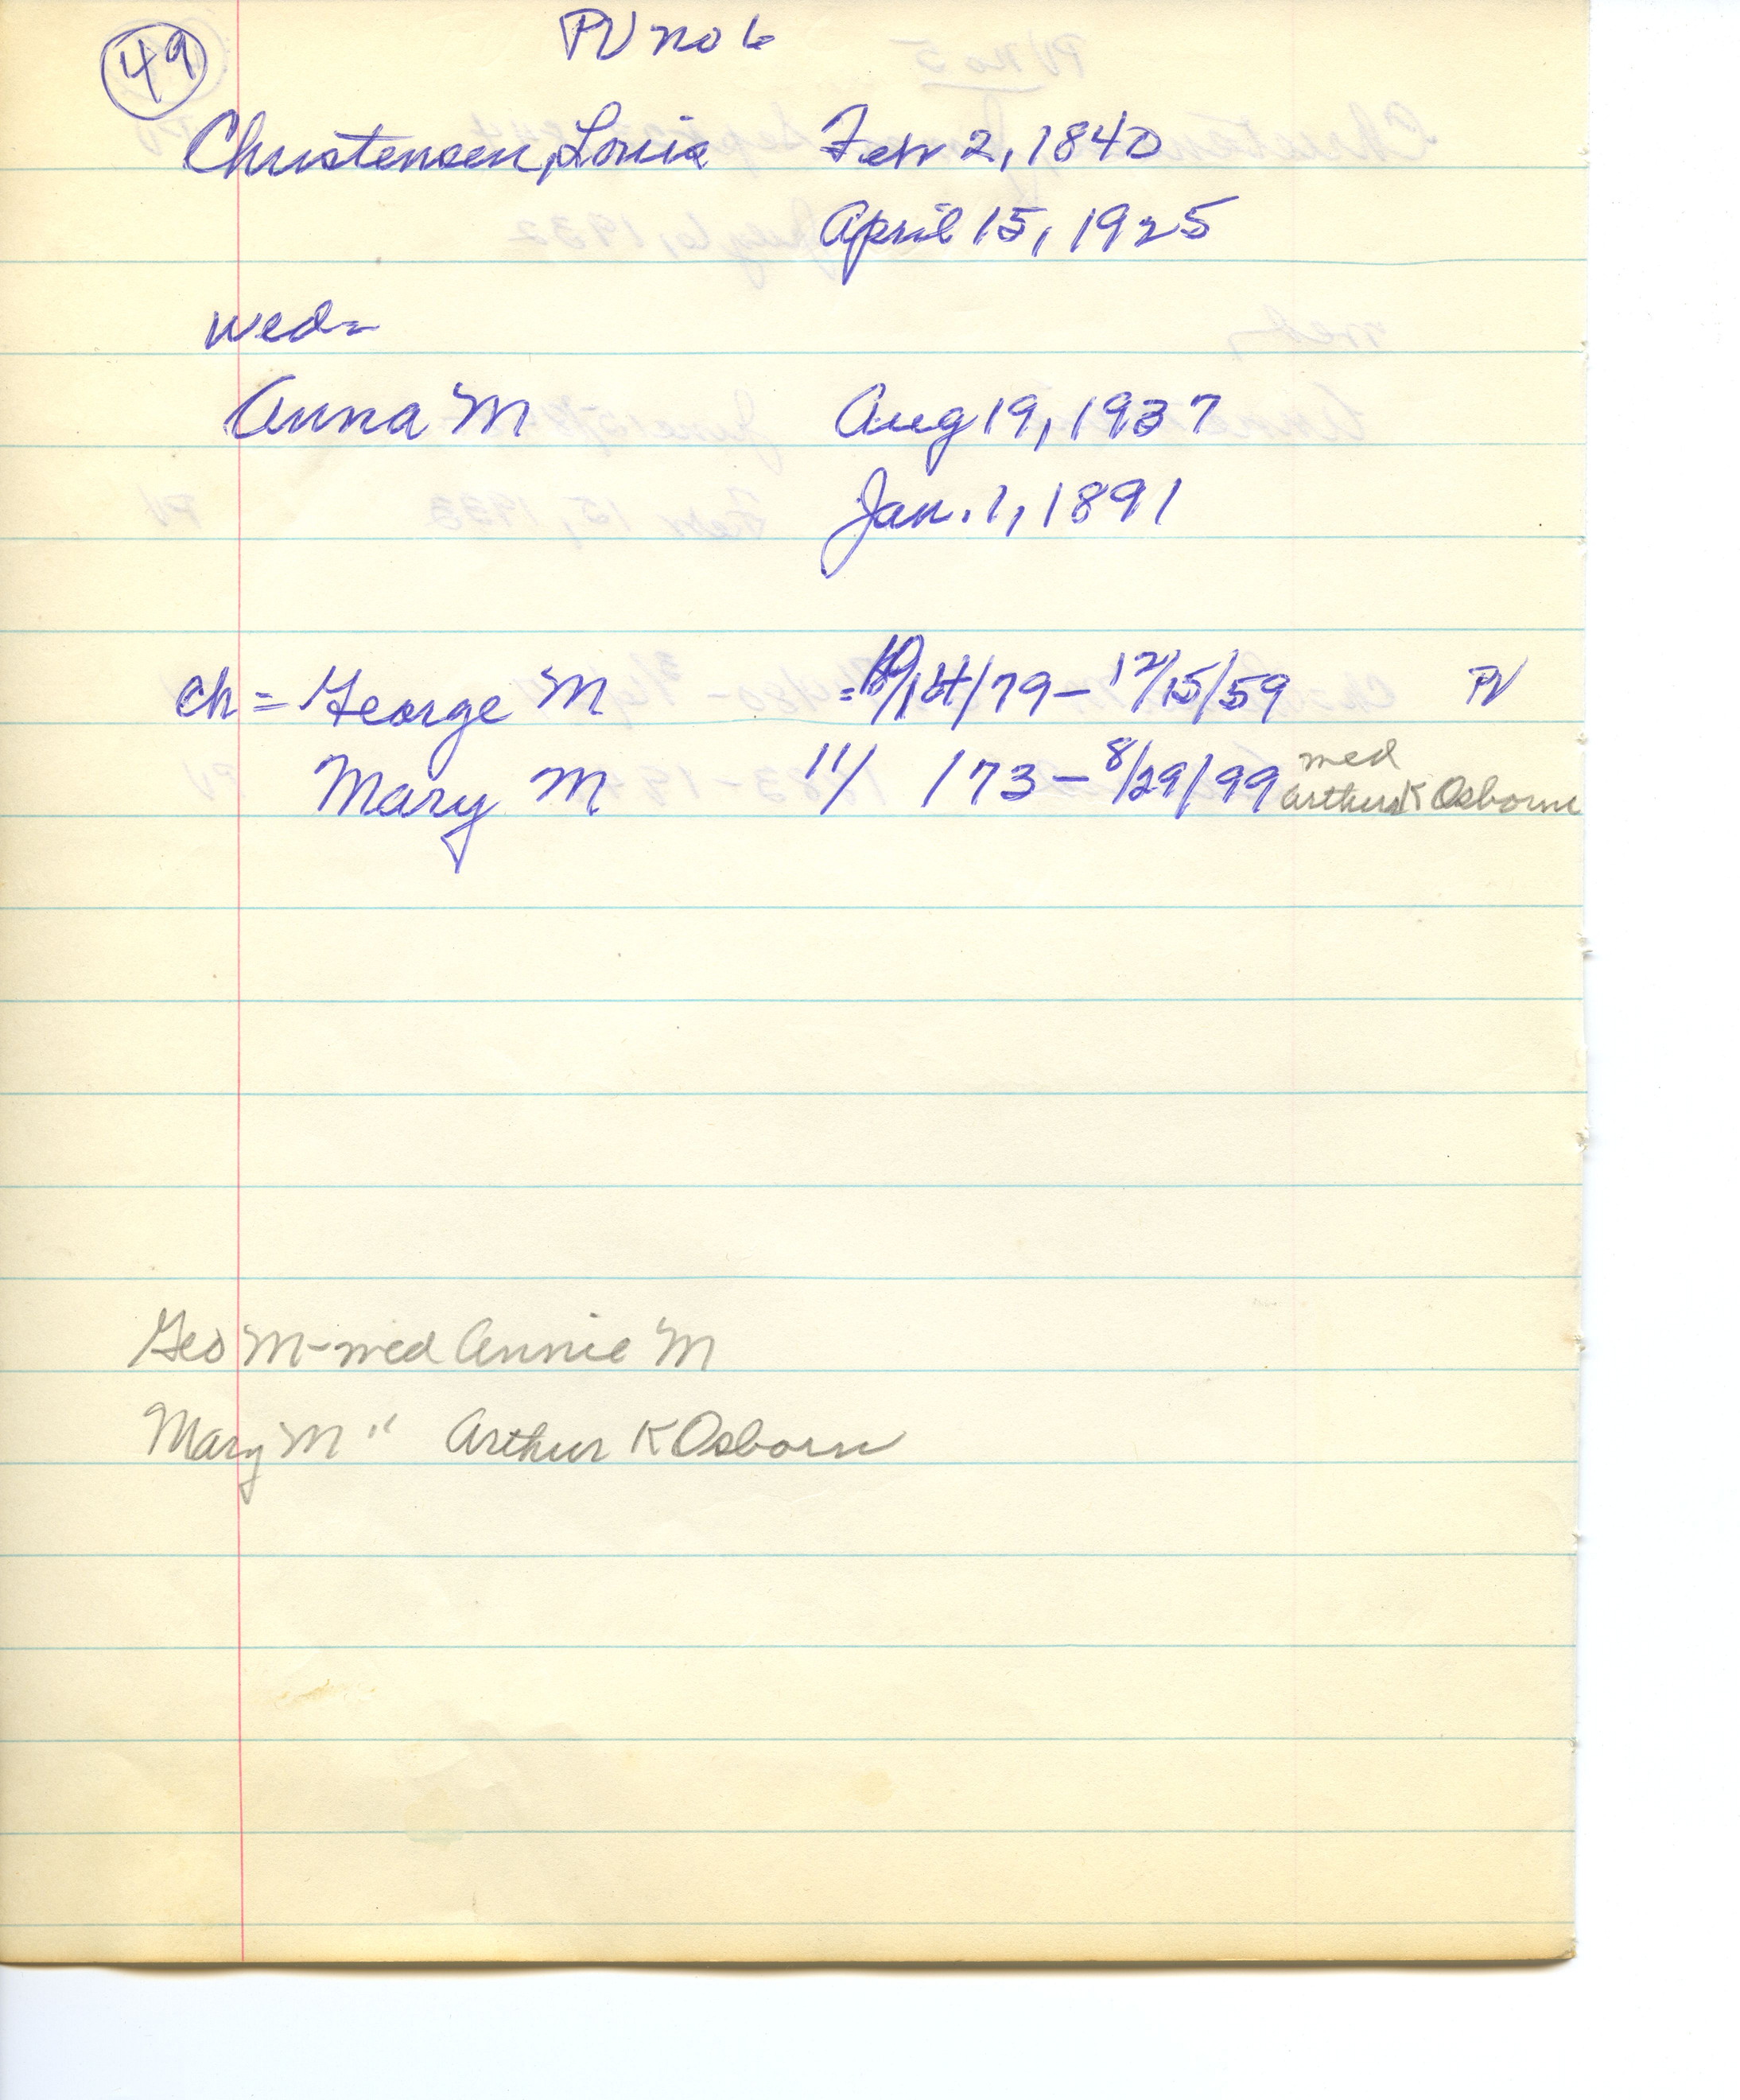 49
PV no 6
Christensen, Louis Feb 2, 1840
April 15, 1925
wed=
Anna M Aug 19, 1937
Jan. 1, 1891
ch = George M /14/79 - 12/15/59 PV
Mary M 11/ /73 - 8/29/99 wed
Arthur K Osborne
Geo M - wed Annie M
Mary M " Arthur K Osborn